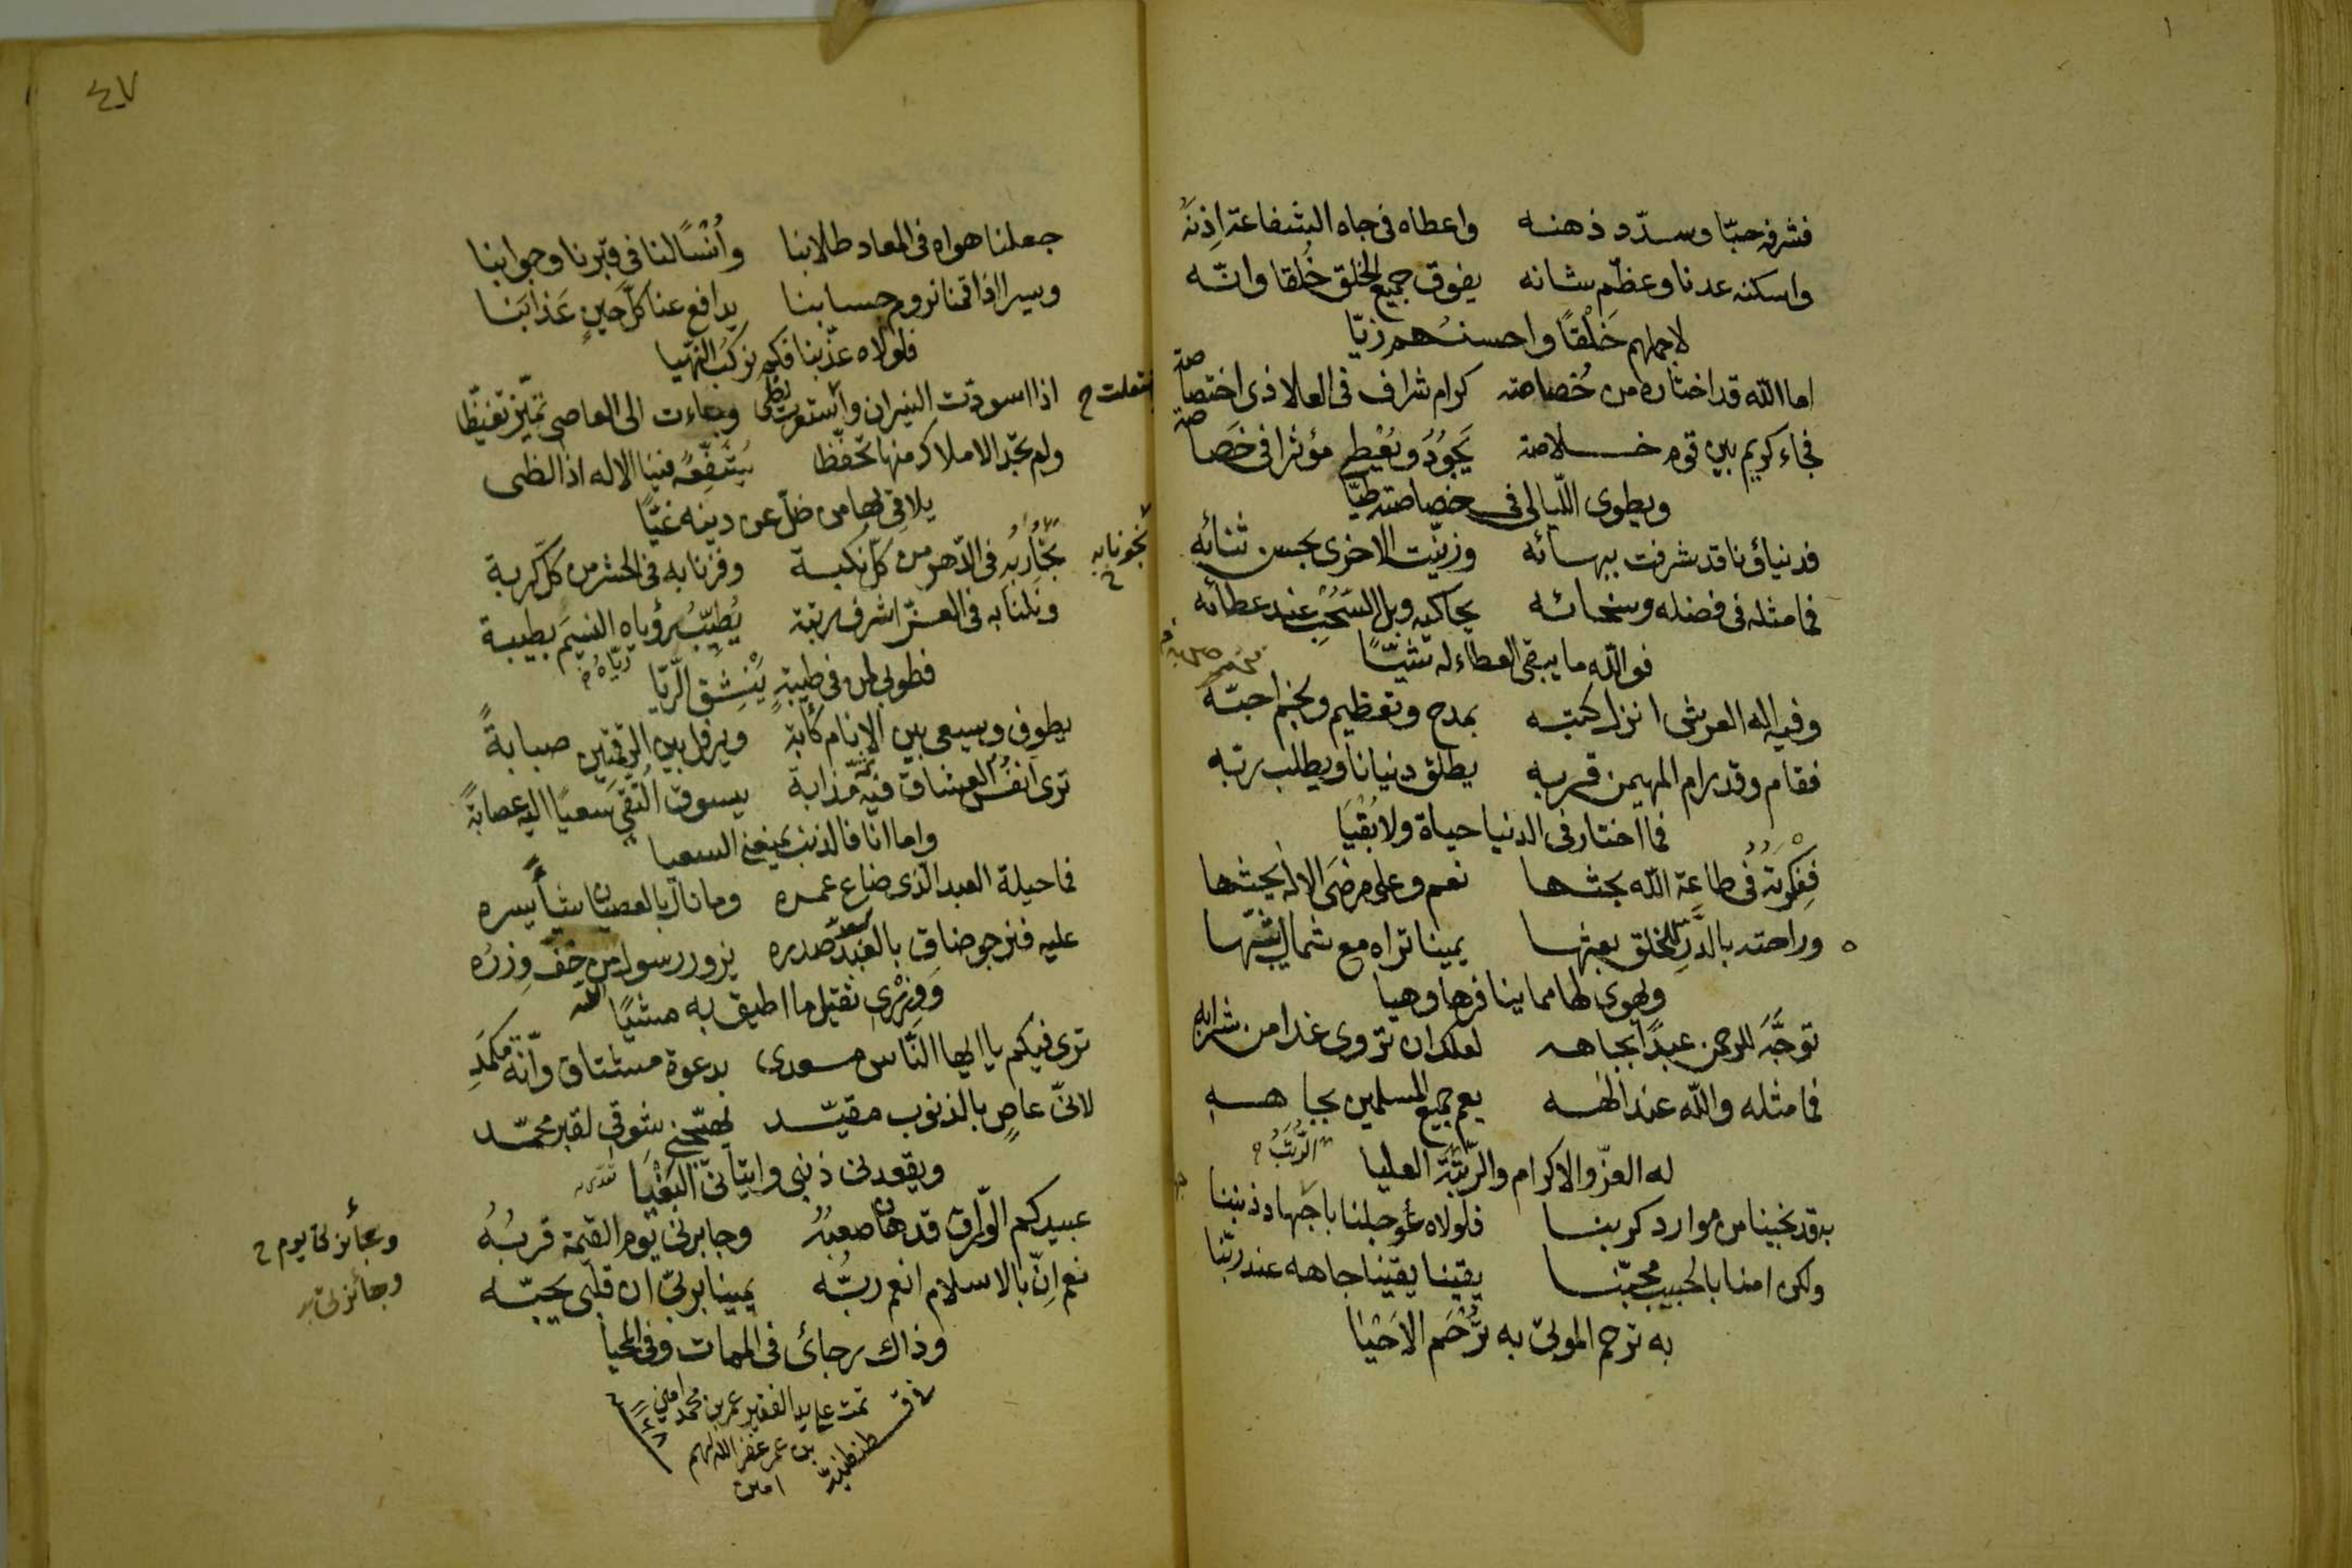 فشرفه حبّا وسدّد ذهنه واعطاه فى جاه الشفاعة اِذنَهُ
واسكنه عدنا وعظّم شانه يفوق جميع الخلق خُلقا وانّه
لاجملهم خَلْقًا واحسنُهم زيّا
اما الله قد اختاره من خُصاصته كرام شراف فى العلا ذى اختصاصة
فجاء كريم بين قوم خلاصة يَجُودُ ويُعْطِى مؤثرا فى خَصاصة
ويطوى اللّيالى فى خصاصته طيّا
فدنياؤنا قد شرفت ببهائه وزيّنت الاخرى بحسن ثنائه
فما مثله فى فضله وسخائه يحاكيه وبل السّحْبِ عند عطائه
فو الله ما يبقى العطاء له شيّئًا
وفيه اله العرش انزل كتبه بمدح وتعظيم وبخم احبّه
فقام وقد رام المهيمن قربه يطلق دنيانا ويطلب ربّه
فما اختار فى الدنيا حياة ولا بُقْيَا
ففِكْرتُهُ فى طاعة الله بحثها نعم وعلى مرضَى الاله يحثها
وراحته بالدّرِّ للخلق بعثها يمينا تراه مع شمال يبثّها
ويهوى لها مما ينافرها وهيا
توجَّهْ للرحمن عبدًا بجاهه لعلك ان تروى غدا من شرابه
فما مثله والله عند الهه يعم جميع المسلمين بجاهه
له العزّ والاكرام والرّتبَة العليا
الرُّتَبُ ح
به قد نجينا من موارد كربنا فلولاه عُوجلنا باجهاد ذنبنا
ولكن امنا بالحبيب محبّنا يقينا يقينا جاهه عند ربّنا
به ترحم الموتى به تُرْحَم الاحْيَا
٤٧
جعلنا هواه فى المعاد طلابنا وأُنْسًا لنا فى قبرنا وجوابنا
وسيرا اذا قمنا نروم حسابنا يدافع عنا كلَّ حينٍ عَذابَنا
فلولاه عذّبنا فكم نركبُ النهيا
اذا اسودّت النيران واستعرت لظى وجاءت الى العاصى تميّز تغيّظا
ولم تجد الاملاك منها تحفّظا يُشَفِّعُه فينا الاله اذا لظى
يلاقى لها من ضلّ عن دينه غيّا
نجونا به ح
نَجَّا رَبُّهُ فى الدّهر من كلّ نكبة وفزنا به فى الحشر من كلّ كربة
ونلنا به فى العزّ اشرف رتبة يُطيِّبُ رؤياه النسيمَ بطيبة
ريّاه ح
فطوبى لمن فى طيبةٍ يَنْشِقِ الرّيّا
يطوف ويسعى بين الانام كأبة ويرفل بين الرقمتين صبابةً
ترى انفُسَ العشاق فيه مُذابة يسوق التّقى سَعيًا اليه عصابةً
واما انا فالذنب يمنعنى السعيا
فما حيلة العبد الذى ضاع عمره وما نال بالعصيان شيأً يسره
عليه فنرجو ضاق بالبُعْد صدره نزور رسول الله من خفّ وِزرُه
وَوِزْرِى ثقيل ما اطيق به مشيًا
ترى فيكم يا ايها النّاس مسعدى بدعوة مشتاق وانّة مُكمَدِ
لانّى عاصٍ بالذنوب مقيّد يهيّجنى شوقى لقبر محمّد
ويقعدنى ذنبى واتيانىَ البَغْيَا
عبيدكم الورّاق قد هان صعبُهُ وجابرنى يوم القيمة قربُهُ
وبجائزتى يوم ح
وجائزتى
نعم اِنّ بالاسلام انعم ربُّه يمينا بربّى ان قلبى يحبّه
وذاك رجائى فى الممات وفى المحيا
تمت على يد الفقير عمر بن محمد امين
بن عمر غفر الله لهم
امين
فى قسطنطنيّة